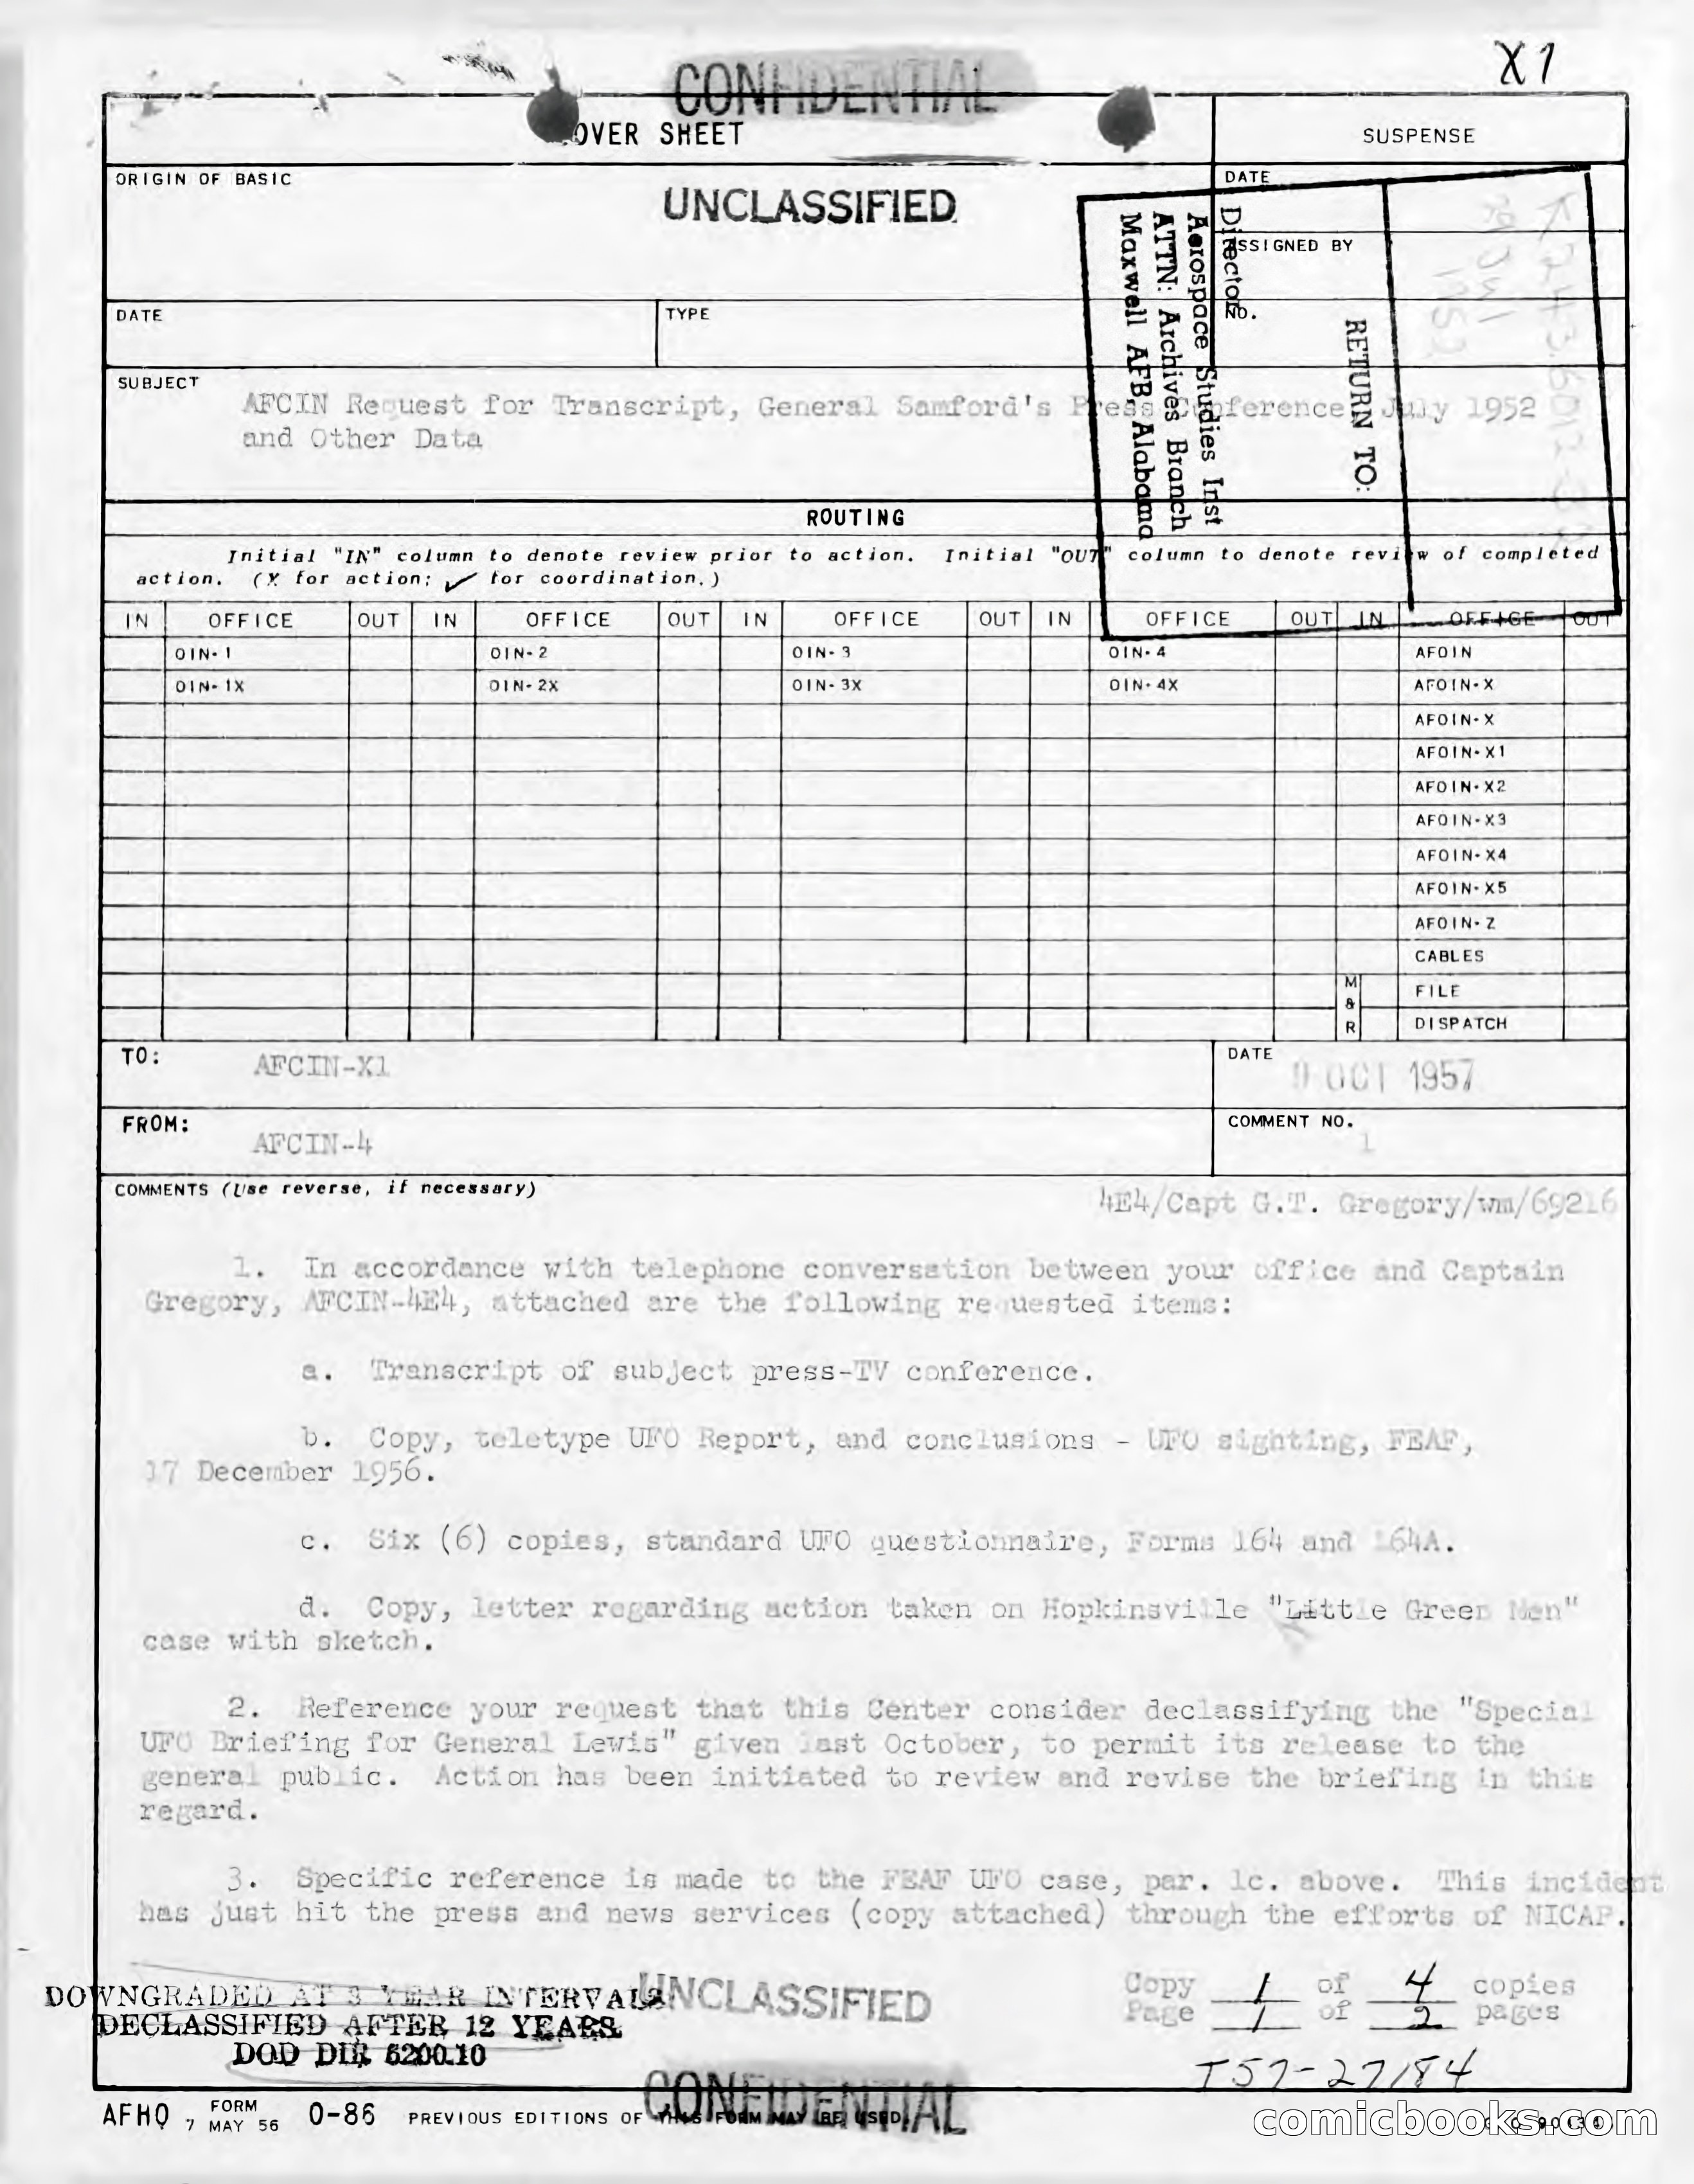 X1
CONFIDENTIAL
OVER SHEET
SUSPENSE
ORIGIN OF BASIC
UNCLASSIFIED
DATE
ASSIGNED BY
NO.
RETURN TO:
Director
Aerospace Studies Inst
ATTN: Archives Branch
Maxwell AFB, Alabama
DATE
TYPE
SUBJECT
AFCIN Request for Transcript, General Samford's Press Conference, July 1952
and Other Data
ROUTING
Initial "IN" column to denote review prior to action. Initial "OUT" column to denote review of completed
action. (X for action; ✓ for coordination.)
IN OFFICE OUT IN OFFICE OUT IN OFFICE OUT IN OFFICE OUT IN OFFICE OUT
OIN-1 OIN-2 OIN-3 OIN-4 AFOIN
OIN-1X OIN-2X OIN-3X OIN-4X AFOIN-X
AFOIN-X
AFOIN-X1
AFOIN-X2
AFOIN-X3
AFOIN-X4
AFOIN-X5
AFOIN-Z
CABLES
M & R
FILE
DISPATCH
TO: AFCIN-X1
DATE OCT 1957
FROM: AFCIN-4
COMMENT NO. 1
COMMENTS (Use reverse, if necessary)
4E4/Capt G.T. Gregory/wm/69216
1. In accordance with telephone conversation between your office and Captain
Gregory, AFCIN-4E4, attached are the following requested items:
a. Transcript of subject press-TV conference.
b. Copy, teletype UFO Report, and conclusions - UFO sighting, FEAF,
17 December 1956.
c. Six (6) copies, standard UFO questionnaire, Forms 164 and 164A.
d. Copy, letter regarding action taken on Hopkinsville "Little Green Men"
case with sketch.
2. Reference your request that this Center consider declassifying the "Special
UFO Briefing for General Lewis" given last October, to permit its release to the
general public. Action has been initiated to review and revise the briefing in this
regard.
3. Specific reference is made to the FEAF UFO case, par. 1c. above. This incident
has just hit the press and news services (copy attached) through the efforts of NICAP.
DOWNGRADED AT 3 YEAR INTERVALS
DECLASSIFIED AFTER 12 YEARS.
DOD DIR 5200.10
UNCLASSIFIED
Copy 1 of 4 copies
Page 1 of 2 pages
T57-27184
CONFIDENTIAL
AFHQ FORM 7 MAY 56 0-86 PREVIOUS EDITIONS OF THIS FORM MAY BE USED.
comicbooks.com